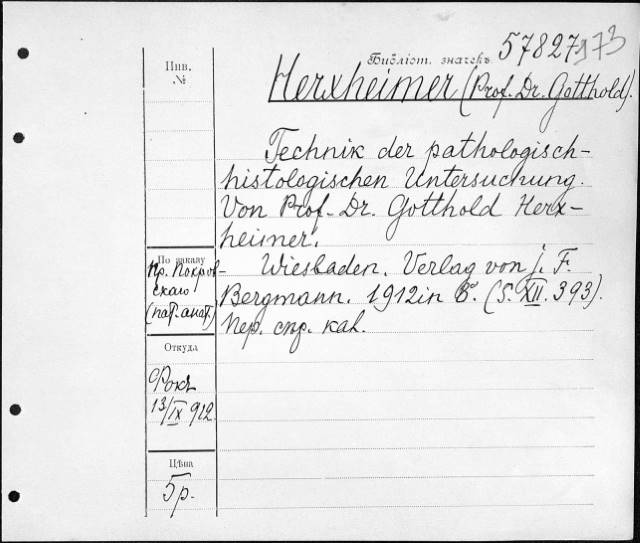 Библіот. значекъ 57827 973
Инв.
№
Herxheimer (Prof. Dr. Gotthold).
Technik der pathologisch-
histologischen Untersuchung.
Von Prof. Dr. Gotthold Herx-
heimer.
Wiesbaden. Verlag von J. F.
Bergmann. 1912 in 8º. (S. XII. 393).
Пер. кал.
По заказу
Пр. Покров-
скаго
(пат. анат.)
Откуда
Фокъ
13/IX 912.
Цѣна
5 р.